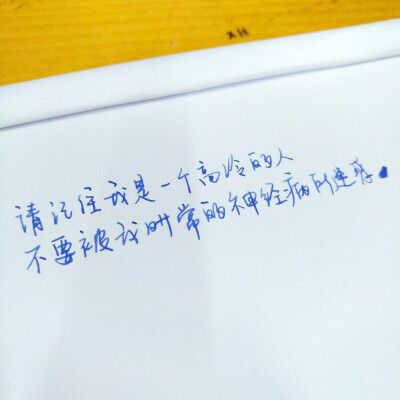 请记住我是一个高冷的人
不要被我时常的神经病所迷惑.